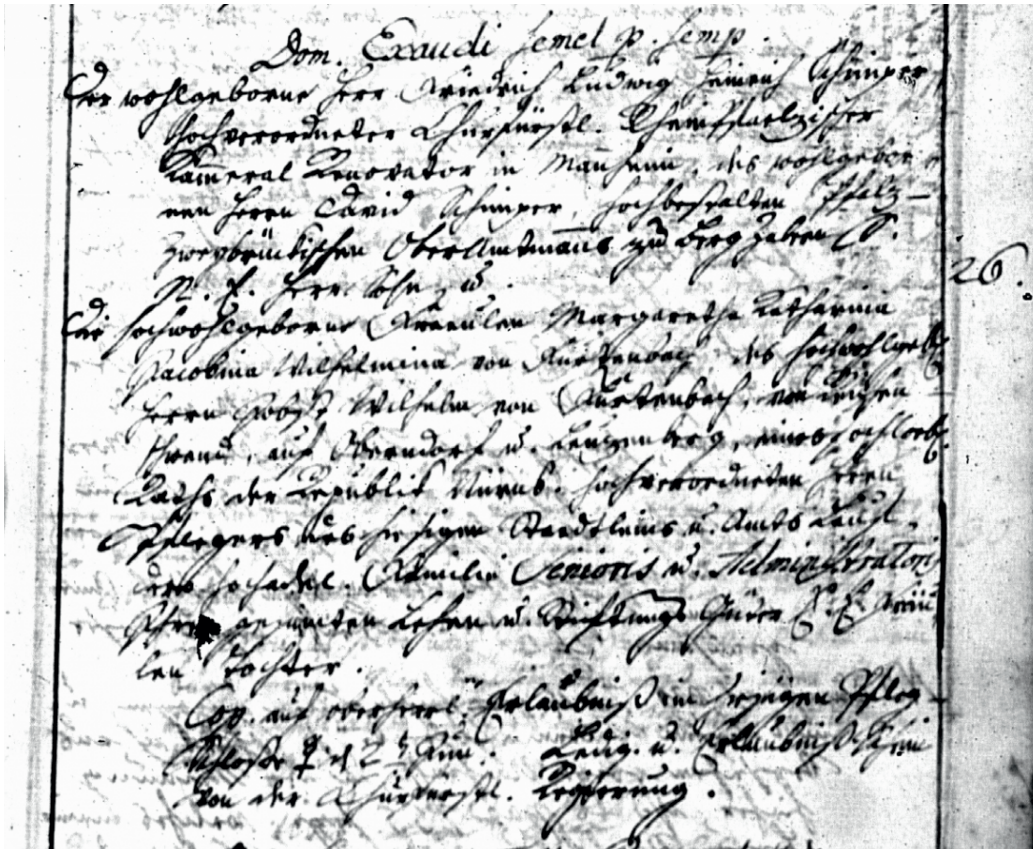 Dom. Exaudi semel p. semp.
Der wohlgeborne Herr Friedrich Ludwig Heinrich Schimper,
hochverordneter Churfürstl. Rheinpfaelzischer
Kam̄eral Renovator in Man̄heim, des wohlgebor
nen Herrn David Schimper, hochbestalten Pfalz-
zweybrückischen OberAmtman̄s zu Bergzabern
Herr Sohn, u.
26.
Die hochwohlgeborne Fraeulen Margaretha Katharina
Jacobina Wilhelmina von Fürtenbach, des hochwohlgeb.
Herrn Wilhelm von Fürtenbach, von Reichen
schwand, auf Oberndorf u. Leuzenberg, eines hochloebl.
Raths der Republik Nürnb. hochverordneten Herrn
Pflegers des hiesigen Staedtleins u. Amts
dero hochadel. Familie Senioris u. Administratoris
Ihrer gesamten Lehen u. Stiftungs Güter Fräu
len Tochter.
Cop. auf oberherrl. Erlaubniß im hiesigen Pfleg-
Schlosse ♀ d. 2 Jun. Ledig. u. Erlaubniß Schein
von der Churfürstl. Regierung.